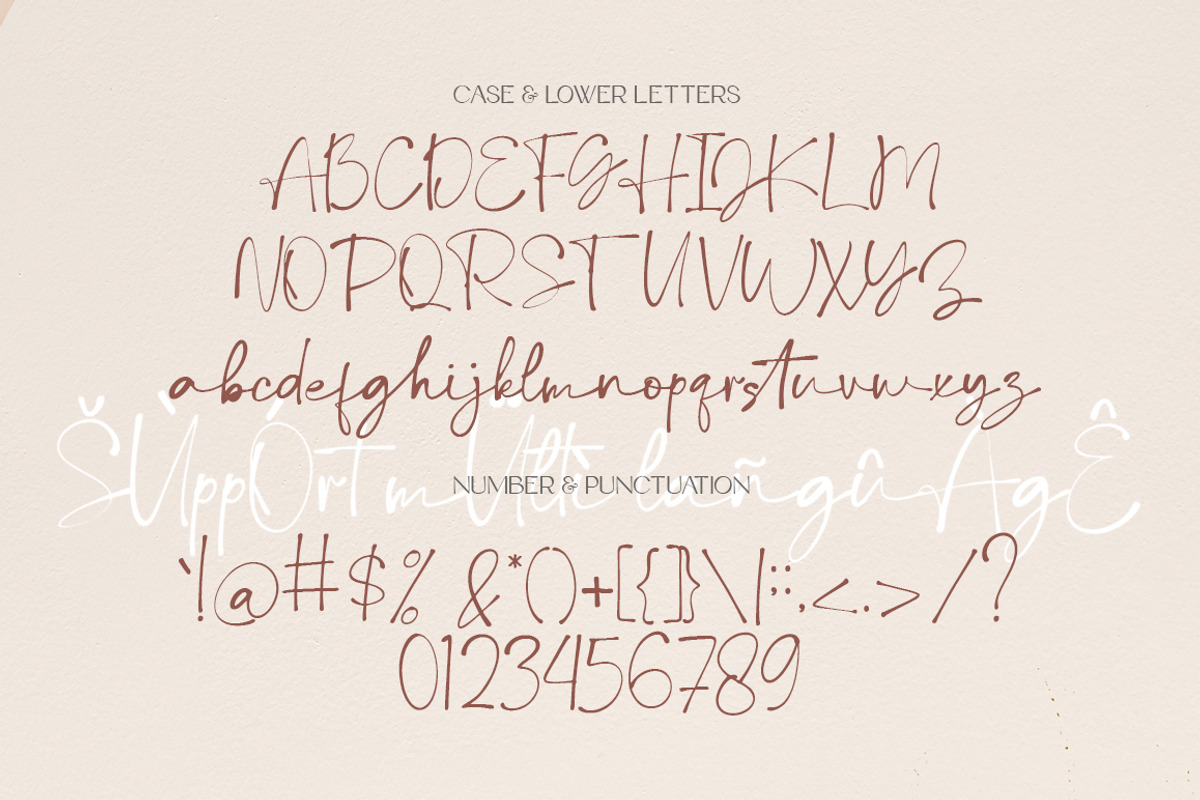 CASE & LOWER LETTERS
ABCDEFGHIJKLM
NOPQRSTUVWXYZ
abcdefghijklmnopqrstuvwxyz
ŠÙppÓrt mÜltì lañgûAgÊ
NUMBER & PUNCTUATION
`!@#$%&*()+[{]}\|;:,<.>/?
0123456789